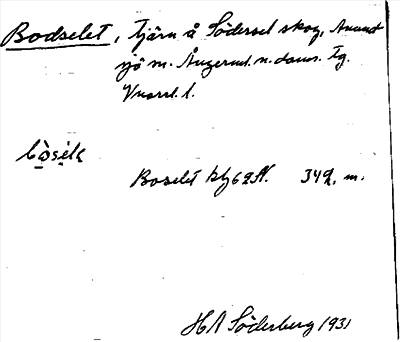 Bodselet, tjärn å Södersel skog, Anund
sjö m. Ångerml. n. doms. Tg.
l.
bòsèlt
Boselet kbl 62 N. 342, m.
HA Söderberg 1931